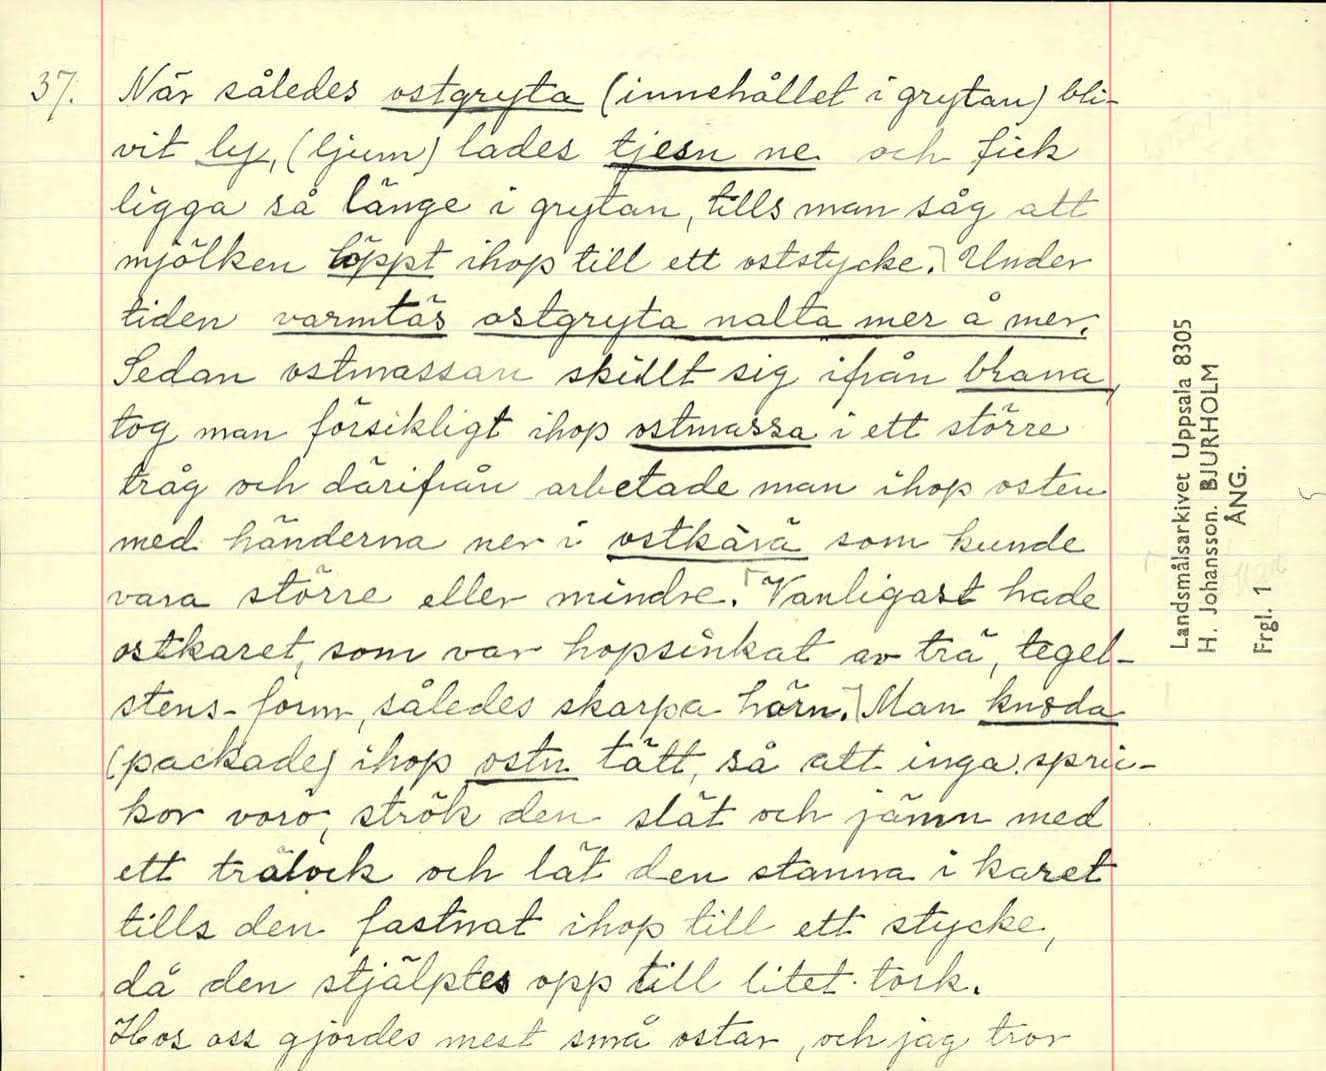 37. När således ostgryta (innehållet i grytan) bli-
vit ly, (ljum) lades tjesn ne och fick
ligga så länge i grytan, tills man såg att
mjölken löppt ihop till ett oststycke. Under
tiden varmtäs ostgryta nalta mer å mer.
Sedan ostmassan skillt sig ifrån blanna,
tog man försikligt ihop ostmassa i ett större
tråg och därifrån arbetade man ihop osten
med händerna ner i ostkärä som kunde
vara större eller mindre. Vanligast hade
ostkaret, som var hopsinkat av trä, tegel-
stens-form, således skarpa hörn. Man knoda
(packade) ihop ostn tätt, så att inga spric-
kor vorö, strök den slät och jämn med
ett trälock och lät den stanna i karet
tills den fastnat ihop till ett stycke,
då den stjälptes opp till litet tork.
Hos oss gjordes mest små ostar, och jag tror
Landsmålsarkivet Uppsala 8305
H. Johansson. BJURHOLM
ÅNG.
Frgl. 1